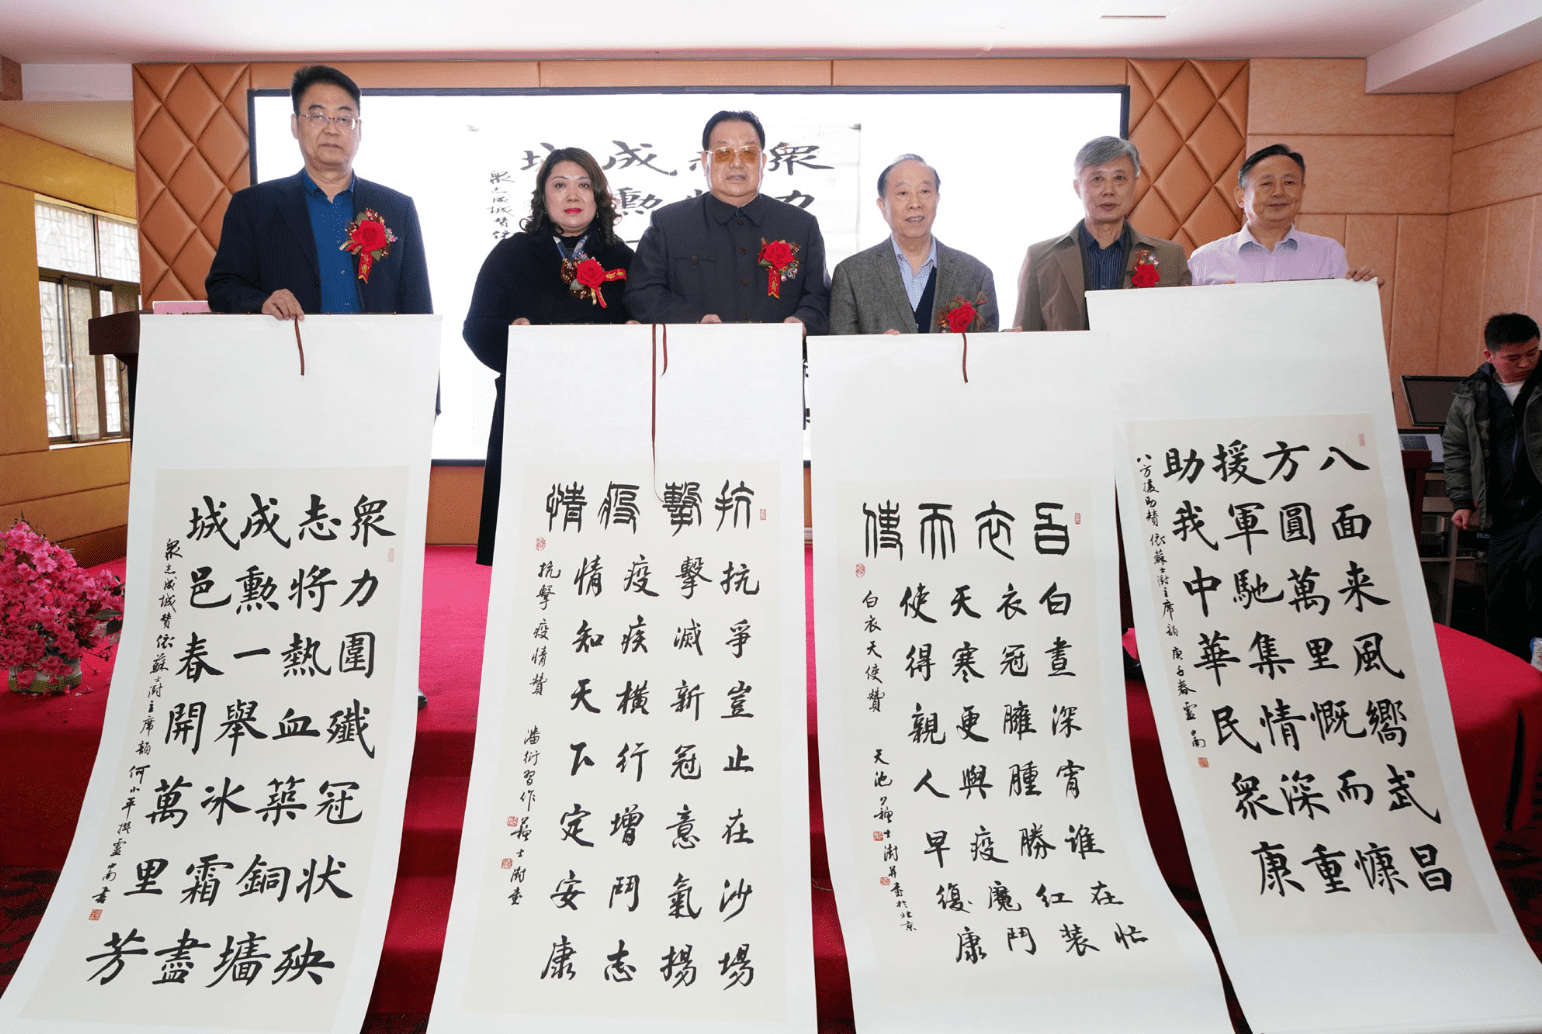 眾力圍殲冠状殃
志將熱血築銅墻
成勳一舉冰霜盡
城邑春開萬里芳
眾志成城贊 依蘇士澍主席韻 何小平撰 靈南書
抗擊疫情
抗爭豈止在沙場
擊滅新冠意氣揚
疫疾橫行增鬥志
情知天下定安康
抗擊疫情贊 潘衍習作 蘇士澍書
白衣天使
白晝深宵谁在忙
衣冠臃腫勝红装
天寒更與疫魔鬥
使得親人早復康
白衣天使贊 天池 蘇士澍并書於北京
八面来風嚮武昌
方圓萬里慨而慷
援軍馳集情深重
助我中華民眾康
八方援助贊 依蘇士澍主席韻 庚子春 靈南